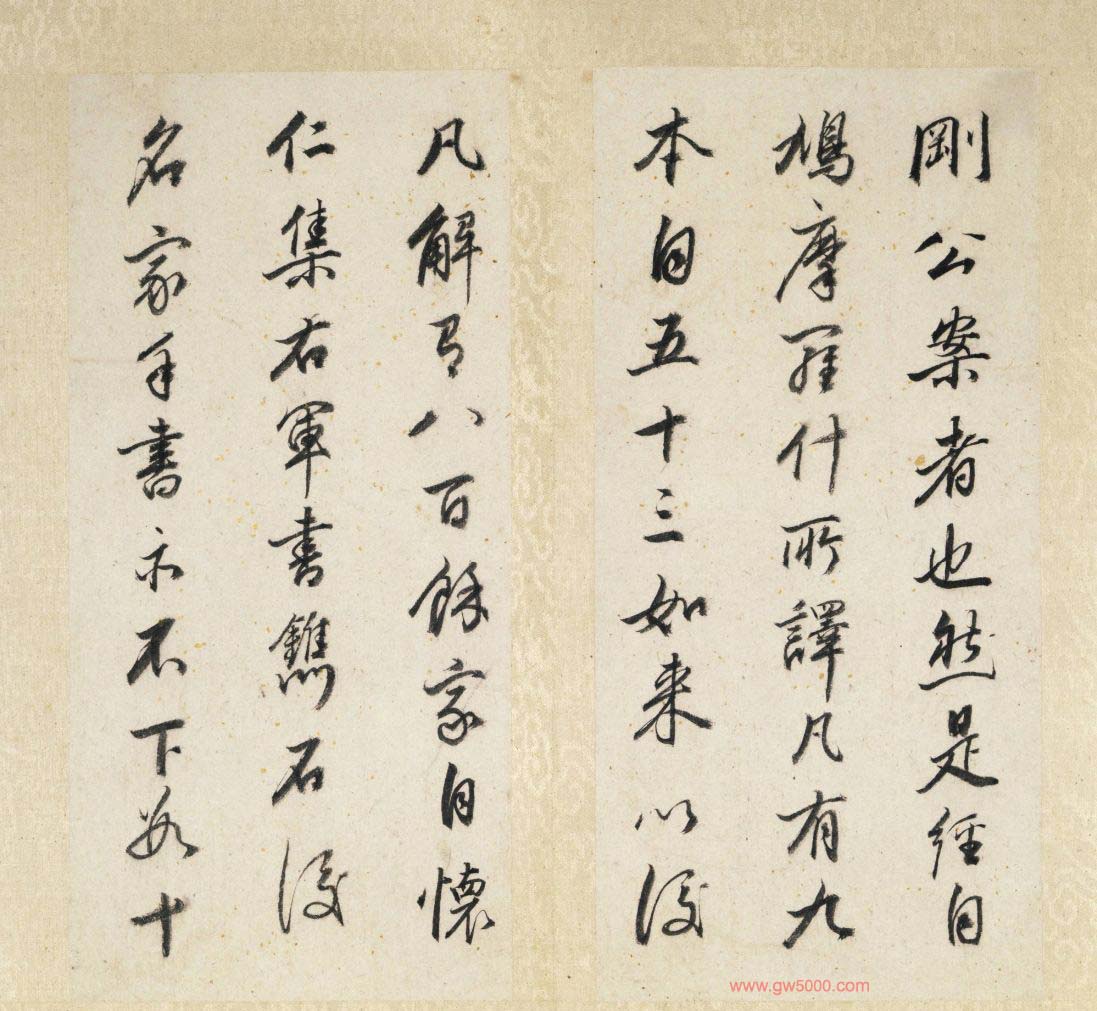 剛公案者也然是經自
鳩摩羅什所譯凡有九
本自五十三如来以後
凡解有八百餘家自懷
仁集右軍書鐫石後
名家手書亦不下數十
www.gw5000.com